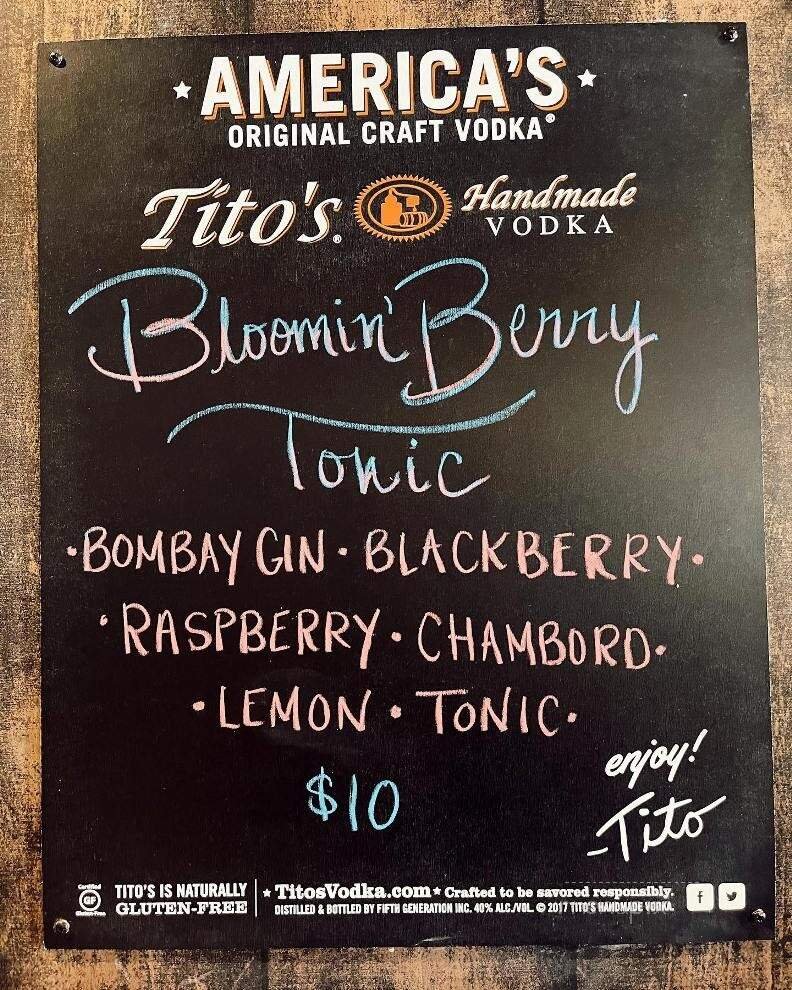 AMERICA'S
ORIGINAL CRAFT VODKA®
Tito's® Handmade
VODKA
Bloomin' Berry
Tonic
·BOMBAY GIN·BLACKBERRY·
·RASPBERRY·CHAMBORD·
·LEMON·TONIC·
$10
enjoy!
-Tito
Certified
GF
Gluten-Free
TITO'S IS NATURALLY
GLUTEN-FREE
★TitosVodka.com★ Crafted to be savored responsibly.
DISTILLED & BOTTLED BY FIFTH GENERATION INC. 40% ALC./VOL. © 2017 TITO'S HANDMADE VODKA.
f